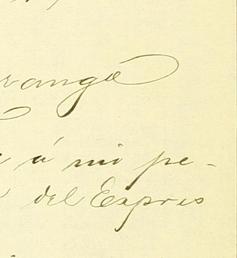 rango
á mi pe-
del Expres